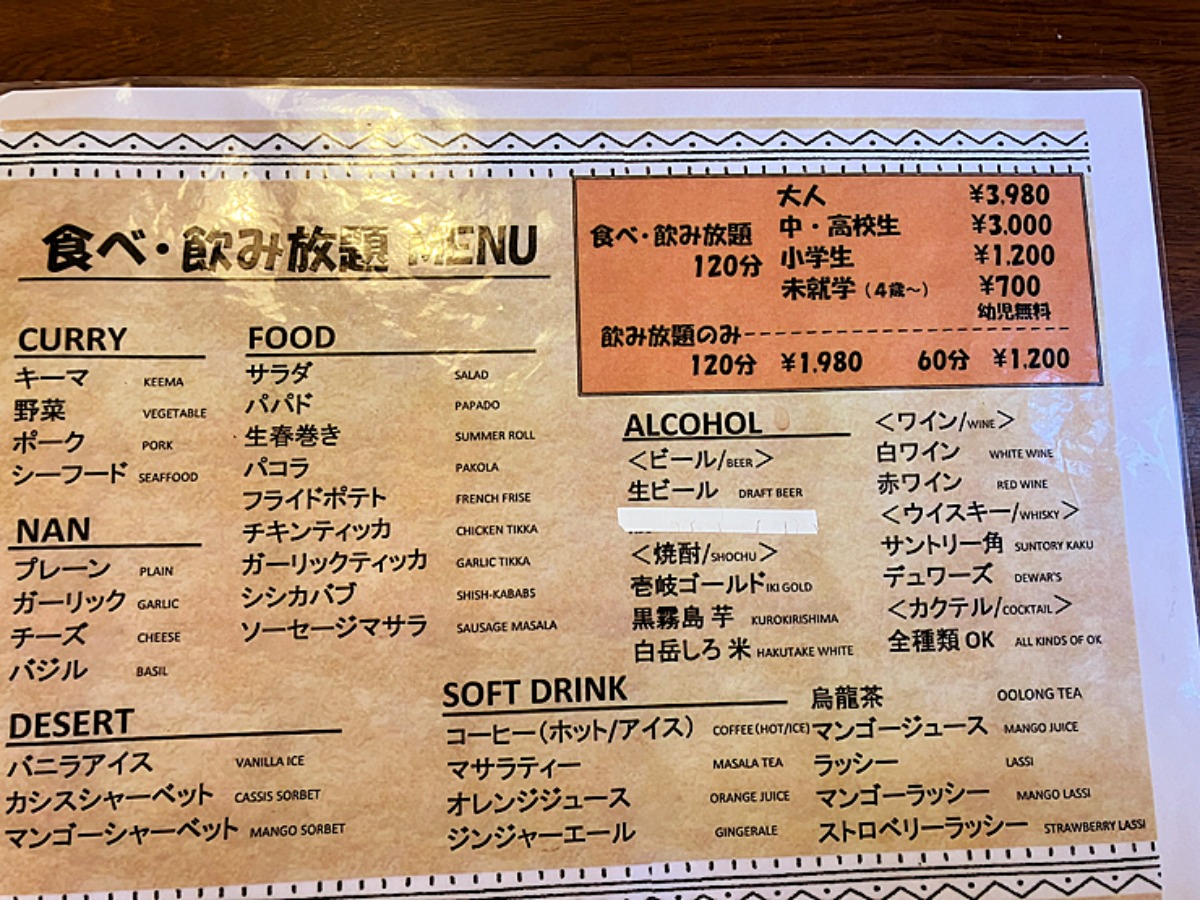 食べ・飲み放題 MENU
食べ・飲み放題
120分
大人 ¥3.980
中・高校生 ¥3.000
小学生 ¥1.200
未就学（4歳～） ¥700
幼児無料
飲み放題のみ
120分 ¥1.980 60分 ¥1.200
CURRY
キーマ KEEMA
野菜 VEGETABLE
ポーク PORK
シーフード SEAFFOOD
NAN
プレーン PLAIN
ガーリック GARLIC
チーズ CHEESE
バジル BASIL
DESERT
バニラアイス VANILLA ICE
カシスシャーベット CASSIS SORBET
マンゴーシャーベット MANGO SORBET
FOOD
サラダ SALAD
パパド PAPADO
生春巻き SUMMER ROLL
パコラ PAKOLA
フライドポテト FRENCH FRISE
チキンティッカ CHICKEN TIKKA
ガーリックティッカ GARLIC TIKKA
シシカバブ SHISH-KABABS
ソーセージマサラ SAUSAGE MASALA
ALCOHOL
＜ビール/BEER＞
生ビール DRAFT BEER
＜焼酎/SHOCHU＞
壱岐ゴールド IKI GOLD
黒霧島 芋 KUROKIRISHIMA
白岳しろ 米 HAKUTAKE WHITE
＜ワイン/WINE＞
白ワイン WHITE WINE
赤ワイン RED WINE
＜ウイスキー/WHISKY＞
サントリー角 SUNTORY KAKU
デュワーズ DEWAR'S
＜カクテル/COCKTAIL＞
全種類 OK ALL KINDS OF OK
SOFT DRINK
コーヒー（ホット/アイス） COFFEE(HOT/ICE)
マサラティー MASALA TEA
オレンジジュース ORANGE JUICE
ジンジャーエール GINGERALE
烏龍茶 OOLONG TEA
マンゴージュース MANGO JUICE
ラッシー LASSI
マンゴーラッシー MANGO LASSI
ストロベリーラッシー STRAWBERRY LASSI